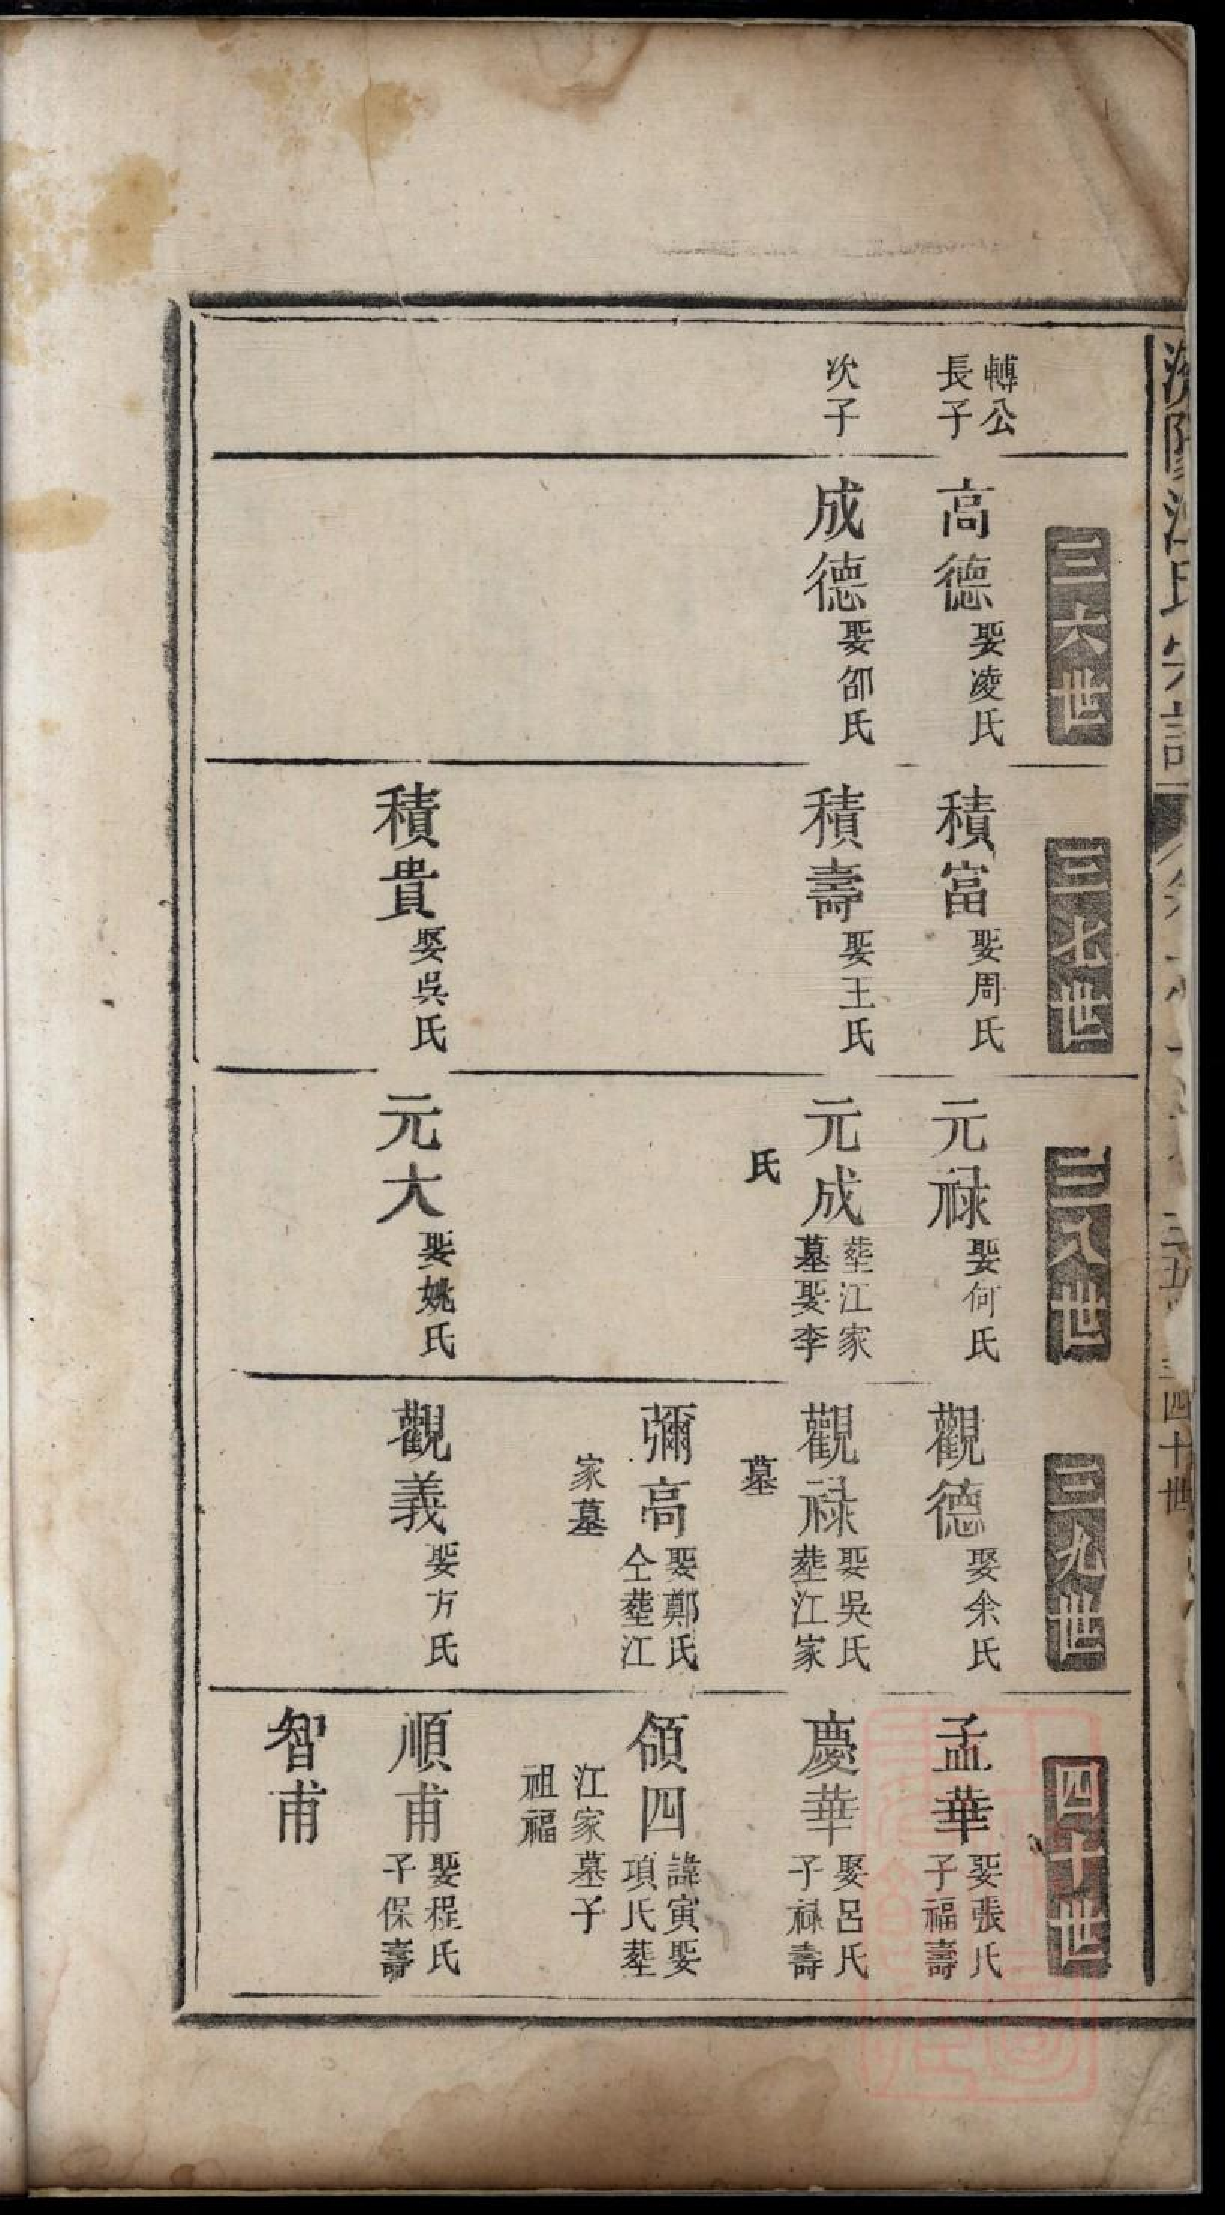 三六世
三七世
三八世
三九世
四十世
轉公
長子
高德
娶凌氏
積富
娶周氏
元祿
娶何氏
觀德
娶余氏
孟華
娶張氏
子福壽
次子
成德
娶邵氏
積壽
娶王氏
元成
塟江家
墓娶李
氏
觀祿
娶吳氏
塟江家
墓
慶華
娶呂氏
子祿壽
彌高
娶鄭氏
仝塟江
家墓
領四
諱寅娶
項氏塟
江家墓子
祖福
積貴
娶吳氏
元大
娶姚氏
觀義
娶方氏
順甫
娶程氏
子保壽
智甫